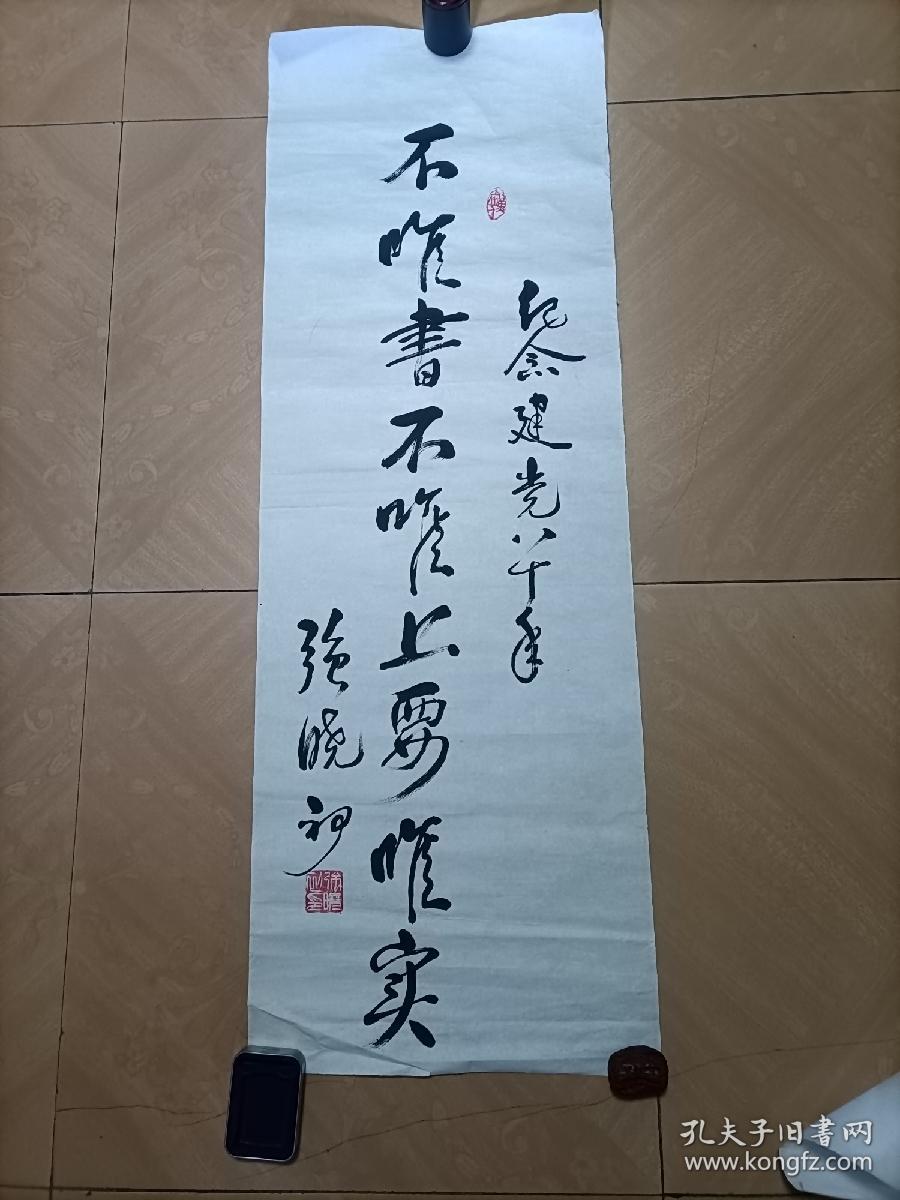 纪念建党八十年
不唯書不唯上要唯实
强晓初
孔夫子旧書网
www.kongfz.com